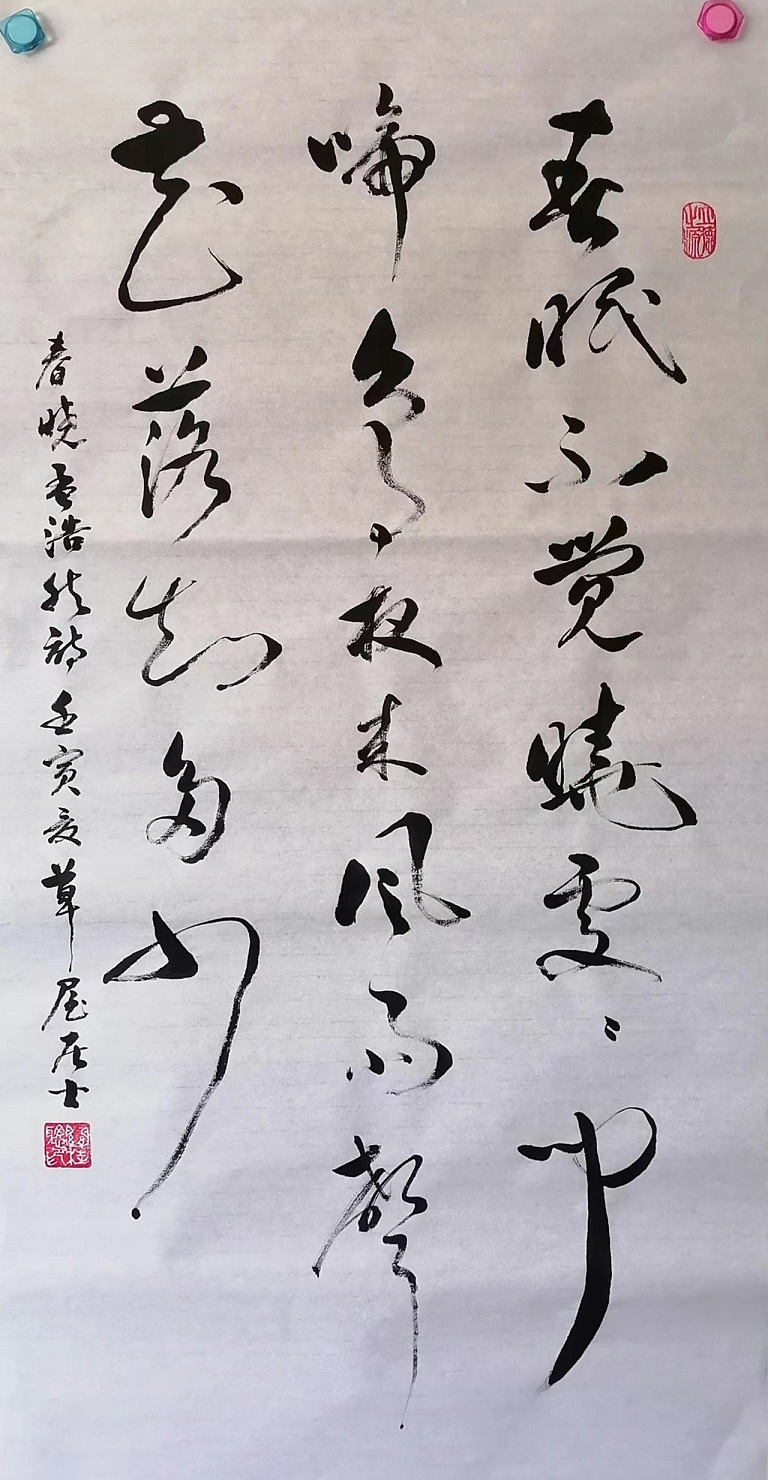 春眠不觉晓处处闻
啼鸟夜来风雨声
花落知多少
春晓孟浩然诗壬寅夏草屋居士